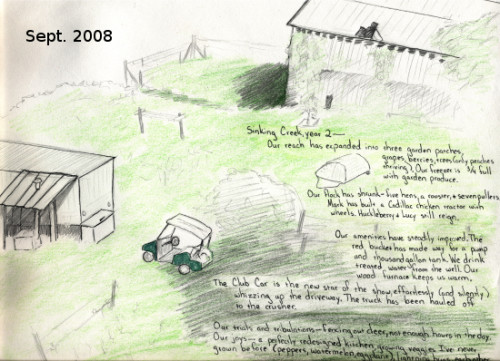 Sept. 2008
Sinking Creek, year 2—
Our reach has expanded into three garden patches,
grapes, berries, trees (only peaches
thriving). Our freezer is 3/4 full
with garden produce.
Our flock has shrunk - five hens, a rooster, + seven pullets
Mark has built a Cadillac chicken tractor with
wheels. Huckleberry + Lucy still reign.
Our amenities have steadily improved. The
red bucket has made way for a pump
and thousand gallon tank. We drink
treated water from the well. Our
wood furnace keeps us warm.
The Club Car is the new star of the show, effortlessly (and silently)
whizzing up the driveway. The truck has been hauled off
to the crusher.
Our trials and tribulations - fencing out deer, not enough hours in the day.
Our joys - a perfectly redesigned kitchen, growing veggies I've never
grown before (peppers, watermelon, eggplant),